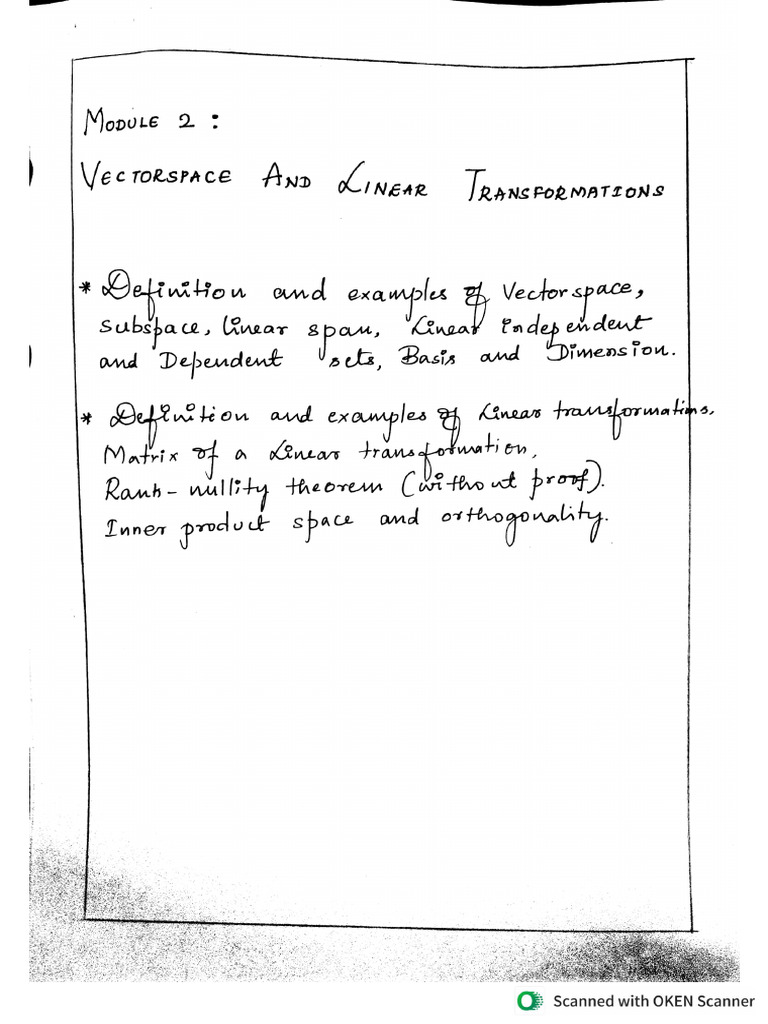 MODULE 2 :
VECTORSPACE AND LINEAR TRANSFORMATIONS
* Definition and examples of Vectorspace,
subspace, linear span, Linear independent
and Dependent sets, Basis and Dimension.
* Definition and examples of Linear transformations,
Matrix of a Linear transformation,
Rank-nullity theorem (without proof).
Inner product space and orthogonality.
Scanned with OKEN Scanner